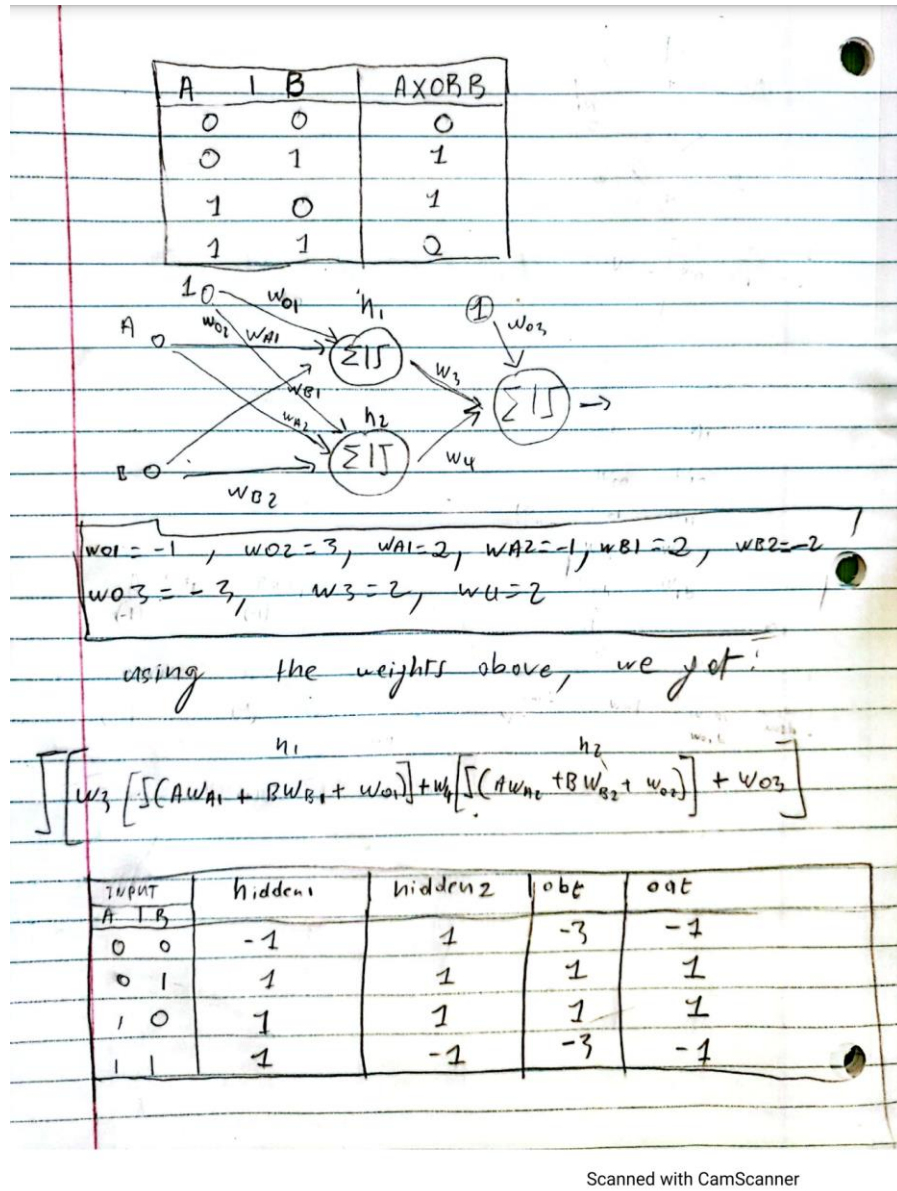 A | B | AXORB
0 0 0
0 1 1
1 0 1
1 1 0
1 w01 h1 1 w03
A w02 wA1 Σ|ʃ w3
wB1 Σ|ʃ
wA2 h2
B Σ|ʃ w4
wB2
w01 = -1 , w02 = 3, wA1 = 2, wA2 = -1, wB1 = 2, wB2 = -2
w03 = -3, w3 = 2, w4 = 2
using the weights above, we get:
h1 h2
ʃ[w3[ʃ(AwA1 + BWB1 + w01)] + w4[ʃ(AwA2 + BWB2 + w02)] + w03]
INPUT hidden1 hidden2 out
A | B
0 0 -1 1 -3 -1
0 1 1 1 1 1
1 0 1 1 1 1
1 1 1 -1 -3 -1
Scanned with CamScanner